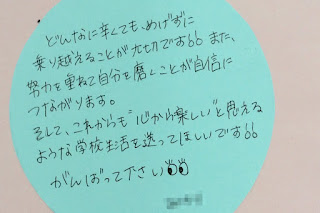 どんなに辛くても、めげずに
乗り越えることが大切です。また、
努力を重ねて自分を磨くことが自信に
つながります。
そして、これからも"心から楽しい"と思える
ような学校生活を送ってほしいです。
がんばって下さい